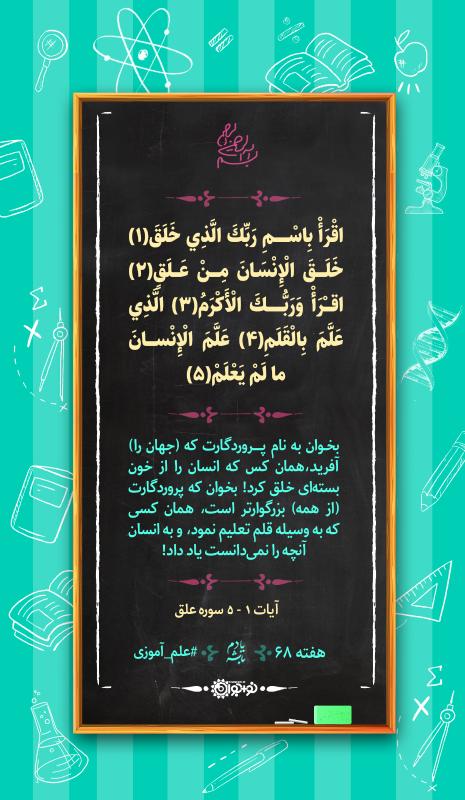 اقْرَأْ بِاسْمِ رَبِّكَ الَّذِي خَلَقَ(۱)
خَلَقَ الْإِنْسَانَ مِنْ عَلَقٍ(۲)
اقْرَأْ وَرَبُّكَ الْأَكْرَمُ(۳) الَّذِي
عَلَّمَ بِالْقَلَمِ(۴) عَلَّمَ الْإِنْسانَ
ما لَمْ يَعْلَمْ(۵)
بخوان به نام پروردگارت که (جهان را)
آفرید،همان کس که انسان را از خون
بسته‌ای خلق کرد! بخوان که پروردگارت
(از همه) بزرگوارتر است، همان کسی
که به وسیله قلم تعلیم نمود، و به انسان
آنچه را نمی‌دانست یاد داد!
آیات ۱ - ۵ سوره علق
هفته ۶۸
#علم_آموزی